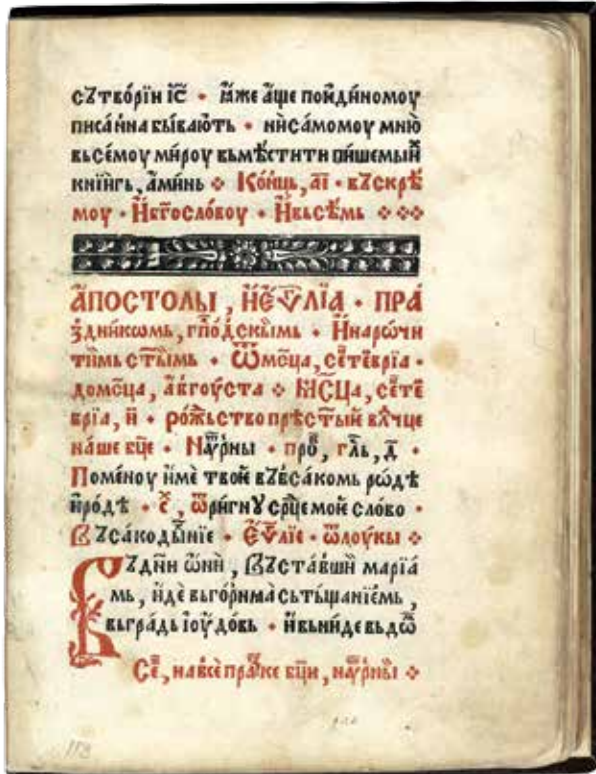 сꙋтво́рїи і҆с҃ • ꙗ҆́же а҆́ще пои҆ди́номоу
писа́нна быва́ють • нѝ са́момоу мню̀
вьсе́моу ми́роу вьмѣ́стити пи́шемый
кни́игь, а҆ми́нь ❖ Ко́нць, а҃і • вꙋскр҃ѣ
моу • Ѝ б҃госло́воу • Ѝ вьсѣ́мь ❖❖❖
А҆ПОСТОЛЫ, Ѝ Е҆Ѵ҃ЛЇА • ПРА
здни́кѡмь, гп҃о́дскымь • Ѝ наро́чи
ти́мь ст҃ы́мь • Ѿ мс҃ца, се҃те́врїа •
до мс҃ца, а҆́вгоуста ❖ МС҃ЦА, се҃те́
врїа, и҃ • ро́жьство прѣст҃ы́и вл҃чце
на́ше бц҃е • На ѵ҆́трны • про҃к, гл҃ь, д҃ •
По́меноу и҆́ме твоѐ въ вса́комь рѡ́дѣ
и҆ ро́дѣ • с҃, ѿри́гнꙋ ср҃це моѐ сло́во •
Вꙋсако дыха́нїе • Е҆ѵ҃лїе • ѿ лоукы̀ ❖
Вꙋ дни ѡ҆нѝ, Вꙋста́вши марїа́
мь, и҆́де вь го́рнꙗа сь тьща́нїемь,
вь гра́дь і҆оу́довь • ѝ вьни́де вь до́
Се҃, на всѐ пра҃ке бц҃и, на ѵ҆́трны ❖
113